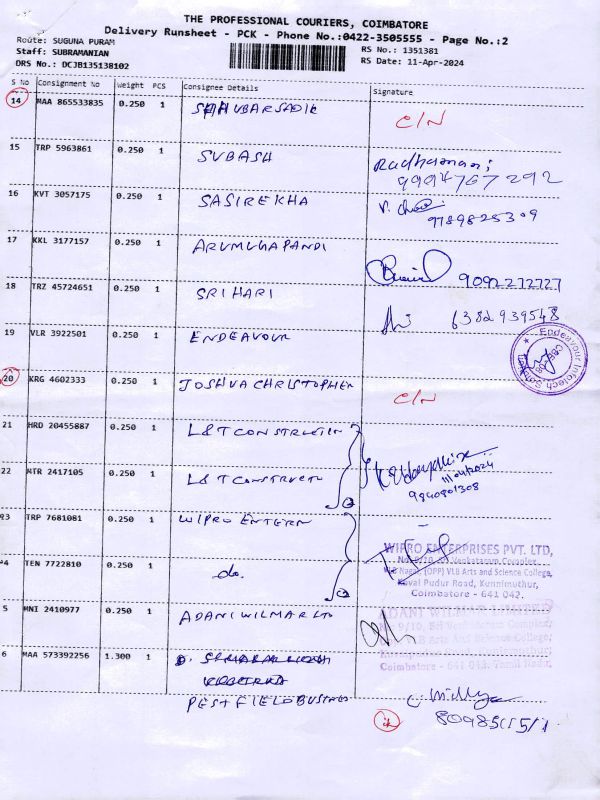 THE PROFESSIONAL COURIERS, COIMBATORE
Delivery Runsheet - PCK - Phone No.:0422-3505555 - Page No.:2
Route: SUGUNA PURAM
Staff: SUBRAMANIAN
DRS No.: DCJB135138102
RS No.: 1351381
RS Date: 11-Apr-2024
S No Consignment No Weight PCS Consignee Details Signature
14 MAA 865533835 0.250 1 C/N
15 TRP 5963861 0.250 1 SUBASH Radhamani
9994767292
16 KVT 3057175 0.250 1 SASIREKHA
9789825309
17 KKL 3177157 0.250 1 ARUMUGAPANDI
9092272727
18 TRZ 45724651 0.250 1 SRIHARI 6382939548
19 VLR 3922501 0.250 1 ENDEAVOUR
Endeavour Infotech
20 KRG 4602333 0.250 1 JOSHVA CHRISTOPHER C/N
21 HRD 20455887 0.250 1 L&T CONSTRUCTION
11/04/2024
9840801308
22 MTR 2417105 0.250 1 L&T CONSTRUCTN
23 TRP 7681081 0.250 1 WIPRO ENTERN
WIPRO ENTERPRISES PVT. LTD,
No. 9/10, Sri Venkatesam Complex,
VLB Nagar, (OPP) VLB Arts and Science College,
Kovai Pudur Road, Kunnimuthur,
Coimbatore - 641 042.
24 TEN 7722810 0.250 1 do.
5 MNI 2410977 0.250 1 ADANI WILMAR LTD
ADANI WILMAR LIMITED
9/10, Sri Venkatesam Complex,
VLB Arts And Science College,
Coimbatore - 641 042. Tamil Nadu.
6 MAA 573392256 1.300 1
PEST FIELD BUSINESS